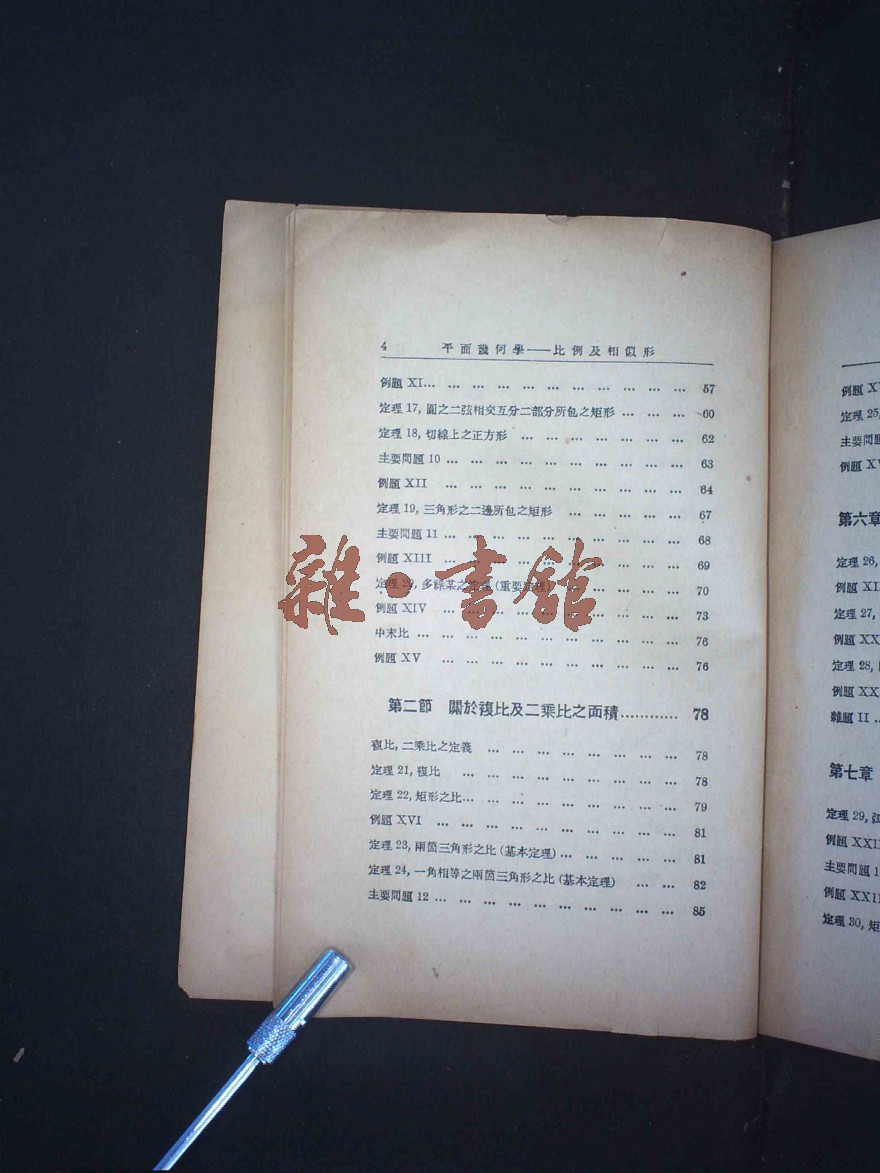 4 平面幾何學——比例及相似形
例題 XI... ... ... ... ... ... ... ... ... ... ... 57
定理 17, 圓之二弦相交互分二部分所包之矩形 ... ... ... 60
定理 18, 切線上之正方形 ... ... ... ... ... ... ... 62
主要問題 10 ... ... ... ... ... ... ... ... ... ... 63
例題 XII ... ... ... ... ... ... ... ... ... ... 64
定理 19, 三角形之二邊所包之矩形 ... ... ... ... ... 67
主要問題 11 ... ... ... ... ... ... ... ... ... ... 68
例題 XIII ... ... ... ... ... ... ... ... ... ... 69
定理 多 之 (重要定理) ... ... 70
例題 XIV ... ... ... ... ... ... ... ... ... ... 73
中末比 ... ... ... ... ... ... ... ... ... ... ... 76
例題 XV ... ... ... ... ... ... ... ... ... ... 76
第二節 關於複比及二乘比之面積............ 78
複比, 二乘比之定義 ... ... ... ... ... ... ... ... 78
定理 21, 複比 ... ... ... ... ... ... ... ... ... 78
定理 22, 矩形之比... ... ... ... ... ... ... ... ... 79
例題 XVI ... ... ... ... ... ... ... ... ... ... 81
定理 23, 兩箇三角形之比 (基本定理) ... ... ... ... ... 81
定理 24, 一角相等之兩箇三角形之比 (基本定理) ... ... 82
主要問題 12 ... ... ... ... ... ... ... ... ... ... 85
雜·書館
例題
定理 25,
主要問
例題
第六章
定理 26,
例題
定理 27,
例題 XX
定理 28,
例題 XX
雜題 II ..
第七章
定理 29,
例題 XXI
主要問題 1
例題 XXII
定理 30, 矩